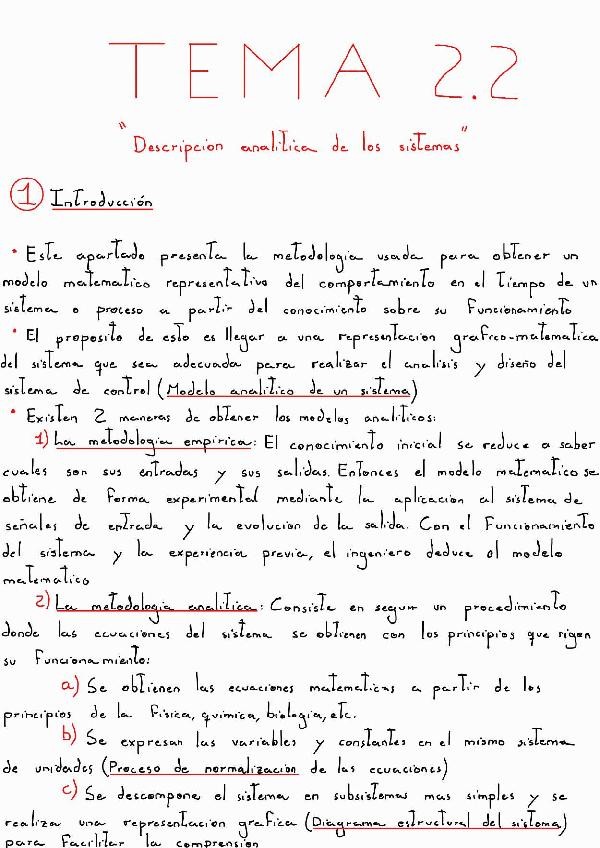 TEMA 2.2
"Descripcion analitica de los sistemas"
1 Introducción
• Este apartado presenta la metodologia usada para obtener un
modelo matematico representativo del comportamiento en el tiempo de un
sistema o proceso a partir del conocimiento sobre su funcionamiento
• El proposito de esto es llegar a una representacion grafico-matematica
del sistema que sea adecuada para realizar el analisis y diseño del
sistema de control (Modelo analitico de un sistema)
• Existen 2 maneras de obtener los modelos analiticos:
1) La metodologia empirica: El conocimiento inicial se reduce a saber
cuales son sus entradas y sus salidas. Entonces el modelo matematico se
obtiene de forma experimental mediante la aplicacion al sistema de
señales de entrada y la evolucion de la salida. Con el funcionamiento
del sistema y la experiencia previa, el ingeniero deduce el modelo
matematico
2) La metodologia analitica: Consiste en seguir un procedimiento
donde las ecuaciones del sistema se obtienen con los principios que rigen
su funcionamiento:
a) Se obtienen las ecuaciones matematicas a partir de los
principios de la fisica, quimica, biologia, etc.
b) Se expresan las variables y constantes en el mismo sistema
de unidades (Proceso de normalización de las ecuaciones)
c) Se descompone el sistema en subsistemas mas simples y se
realiza una representacion grafica (Diagrama estructural del sistema)
para facilitar la comprension